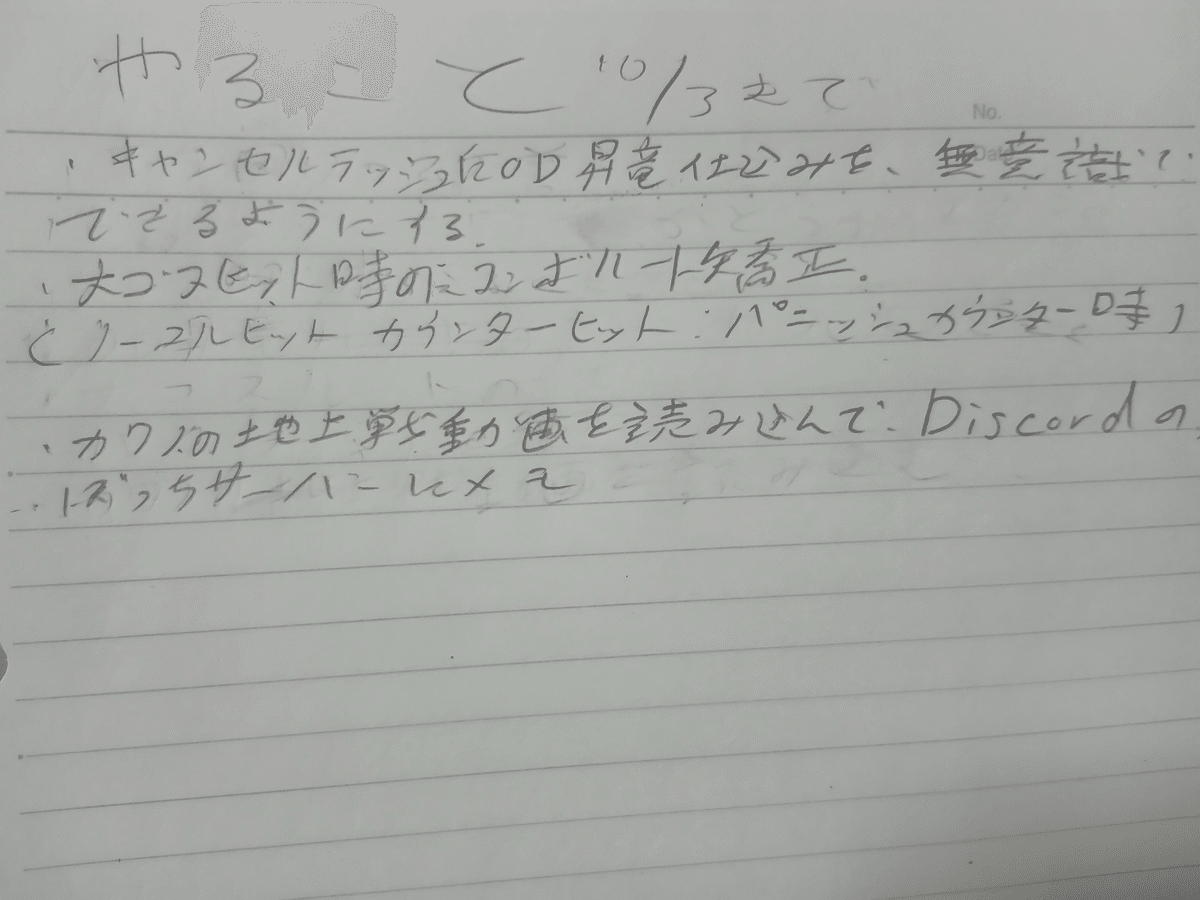 やること 10/3まで
No.
・キャンセルラッシュにOD昇竜仕込みを、無意識に
できるようにする.
・大ゴスヒット時のコンボルート矯正.
(ノーマルヒット カウンターヒット パニッシュカウンター時)
・カワノの地上戦動画を読み込んで、Discordの
ぼっちサーバーにメモ